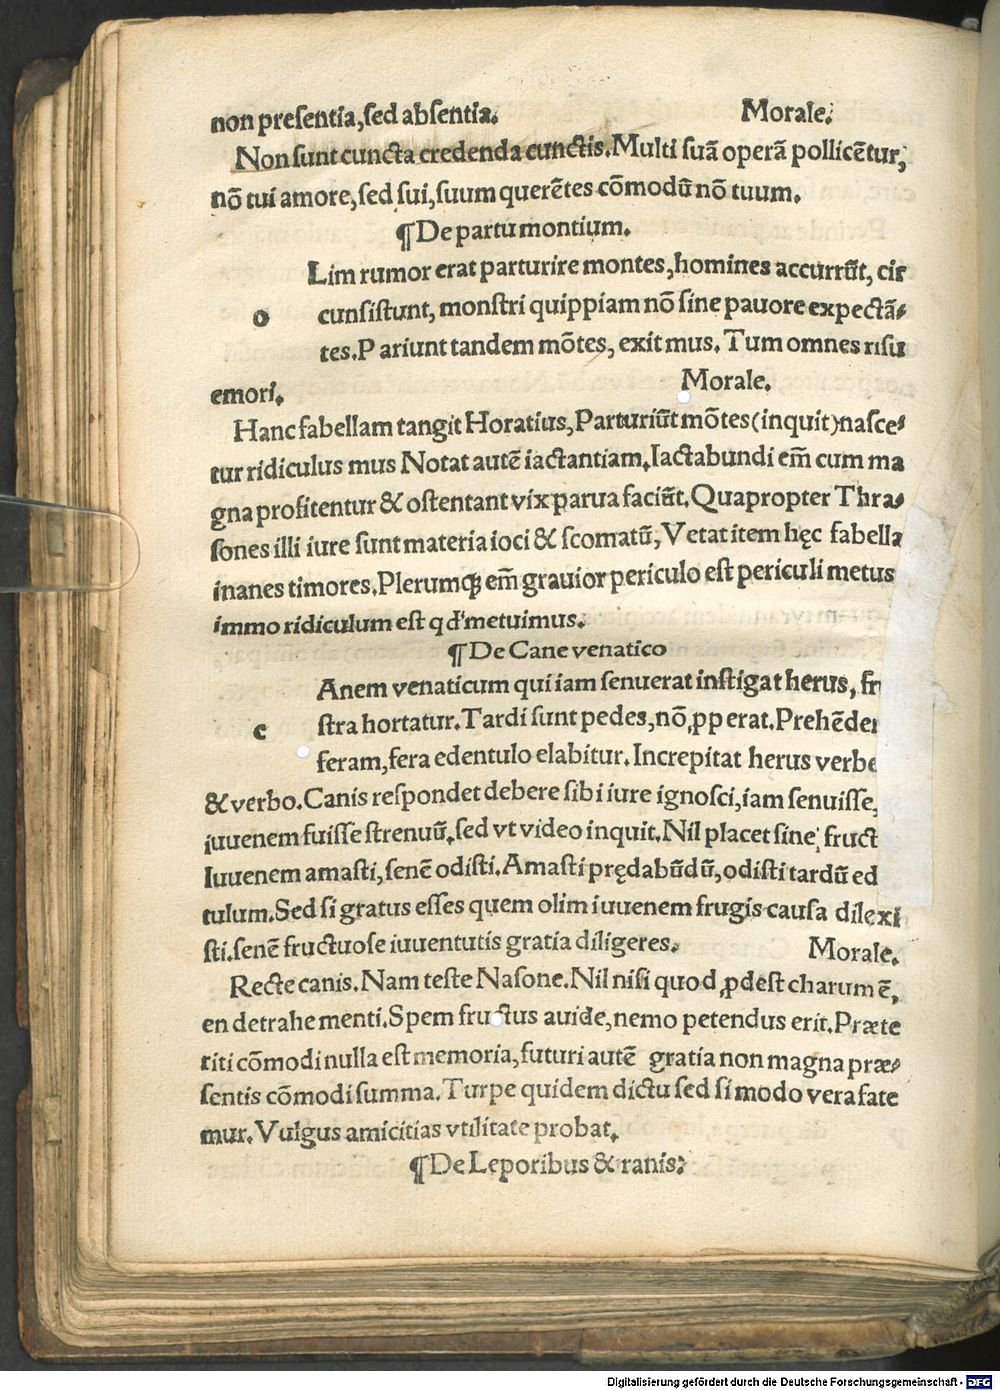 non presentia,sed absentia. Morale.
Non sunt cuncta credenda cunctis.Multi suā operā pollicētur,
nō tui amore,sed sui,suum querētes cōmodū nō tuum.
¶De partu montium.
Lim rumor erat parturire montes,homines accurrūt, cir
o cunsistunt, monstri quippiam nō sine pavore expectā-
tes.Pariunt tandem mōtes, exit mus. Tum omnes risu
emori. Morale.
Hanc fabellam tangit Horatius,Parturiūt mōtes(inquit)nasce-
tur ridiculus mus Notat autē iactantiam.Iactabundi em̄ cum ma
gna profitentur & ostentant vix parua faciūt.Quapropter Thra-
sones illi iure sunt materia ioci & scomatū, Vetat item hęc fabella
inanes timores.Plerumqꝫ em̄ grauior periculo est periculi metus
immo ridiculum est q d' metuimus.
¶De Cane venatico
Anem venaticum qui iam senuerat instigat herus,
c stra hortatur.Tardi sunt pedes,nō ꝓperat.
feram,fera edentulo elabitur.Increpitat herus
& verbo.Canis respondet debere sibi iure ignosci,iam senuisse,
iuuenem fuisse strenuū,sed vt video inquit.Nil placet sine fruct
Iuuenem amasti,senē odisti.Amasti prędabūdū,odisti tardū ed
tulum.Sed si gratus esses quem olim iuuenem frugis causa dilexi
sti.senē fructuose iuuentutis gratia diligeres. Morale.
Recte canis.Nam teste Nasone.Nil nisi quod ꝓdest charum ē,
en detrahe menti.Spem fructus auide,nemo petendus erit.Præte
riti cōmodi nulla est memoria,futuri autē gratia non magna præ-
sentis cōmodi summa.Turpe quidem dictu sed si modo vera fate
mur.Vulgus amicitias vtilitate probat.
¶De Leporibus & ranis:
Digitalisierung gefördert durch die Deutsche Forschungsgemeinschaft - DFG